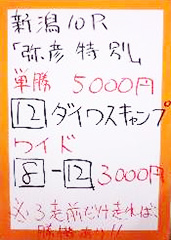 新潟10R
「弥彦特別」
単勝 5000円
12 ダイワスキャンプ
ワイド
8-12 3000円
※3走前だけ走れば、
勝機あり!!